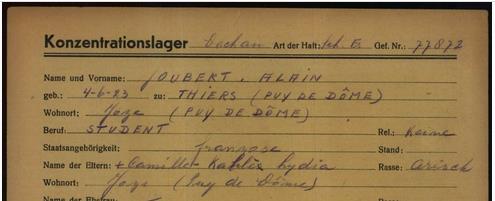 Konzentrationslager Dachau Art der Haft: Sch. Fr. Gef. Nr.: 77872
Name und Vorname: JOUBERT, ALAIN
geb.: 4-6-23 zu: THIERS (PUY DE DÔME)
Wohnort: Joze (PUY DE DÔME)
Beruf: STUDENT Rel.: Keine
Staatsangehörigkeit: franzose Stand:
Name der Eltern: + Camille Lydia Rasse: arisch
Wohnort: Joze (Puy de Dôme)